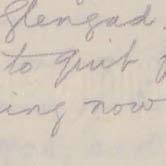 glengad.
to quit
ing now